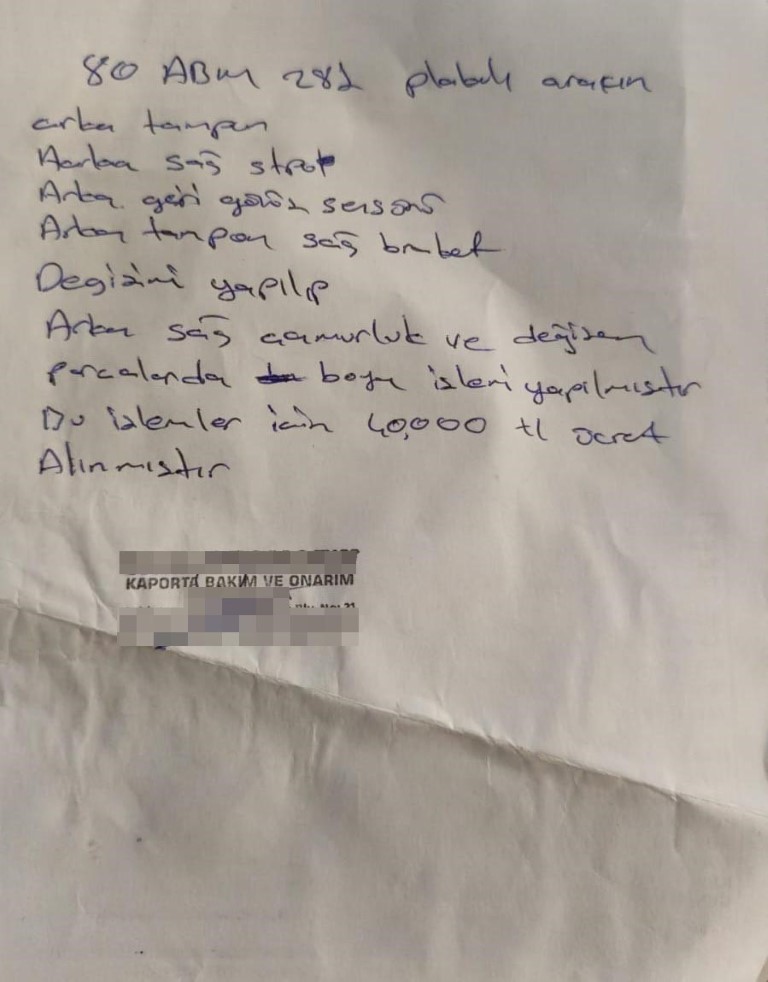 80 ABM 282 plakalı aracın
arka tampon
Aarka sağ strop
Arka geri görüş sensörü
Arka tampon sağ braket
Degişimi yapılıp
Arka sağ çamurluk ve değişen
parcalarda boya işleri yapılmıştır
Bu işlemler icin 40,000 tl ücret
Alınmıştır
KAPORTA BAKIM VE ONARIM